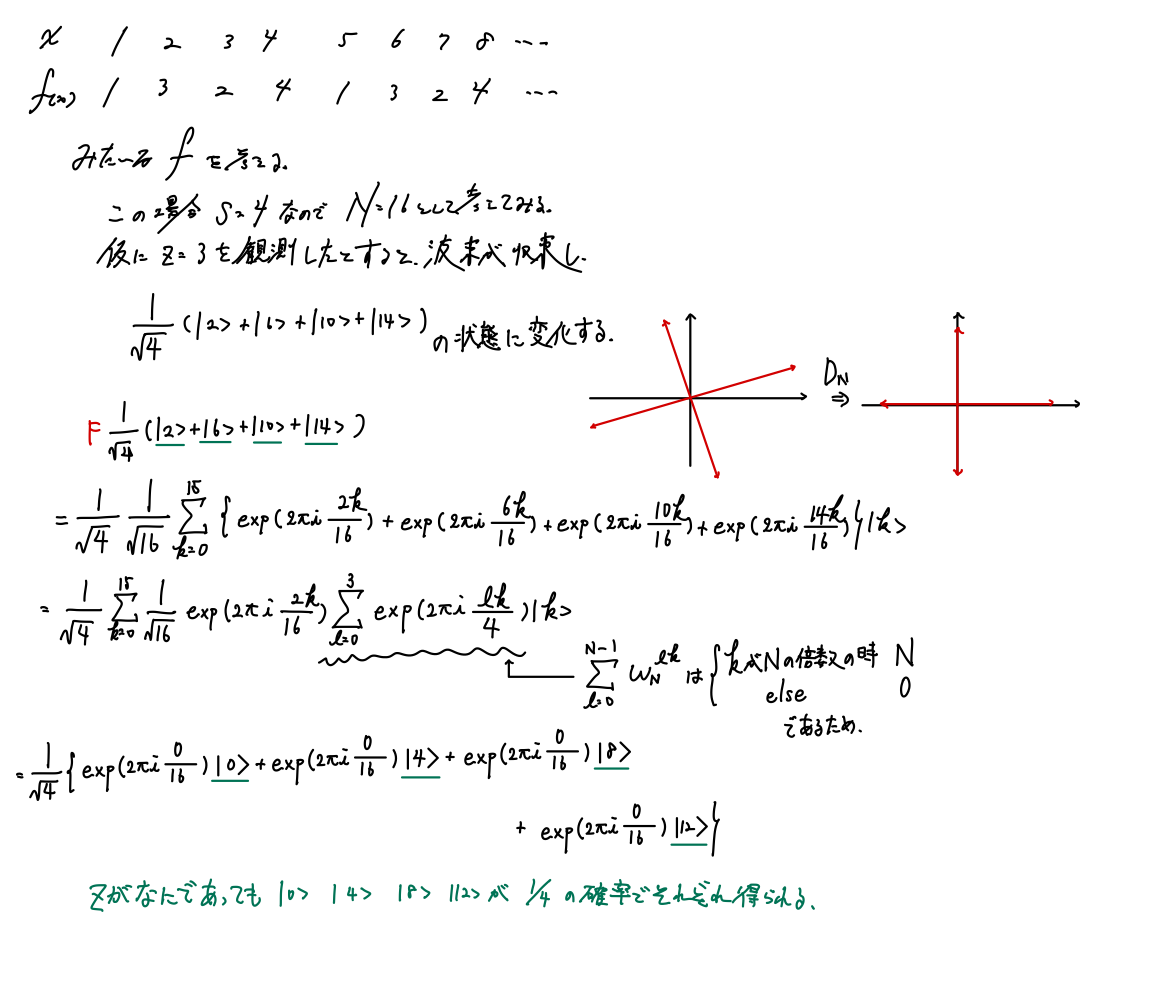 x 1 2 3 4 5 6 7 8 ...
f(x) 1 3 2 4 1 3 2 4 ...
みたいな f を考える.
この場合 S=4 なので N=16として考えてみる.
仮に z=3 を観測したとすると、波束が収束し、
1/√4 (|2>+|6>+|10>+|14>) の状態に変化する.
D_N
⇒
F 1/√4 (|2>+|6>+|10>+|14>)
= 1/√4 1/√16 Σ_{k=0}^{15} { exp(2πi 2k/16) + exp(2πi 6k/16) + exp(2πi 10k/16) + exp(2πi 14k/16) } |k>
= 1/√4 Σ_{k=0}^{15} 1/√16 exp(2πi 2k/16) Σ_{l=0}^{3} exp(2πi lk/4) |k>
Σ_{l=0}^{N-1} ω_N^{lk} は { kがNの倍数の時 N
else 0
であるため.
= 1/√4 { exp(2πi 0/16) |0> + exp(2πi 0/16) |4> + exp(2πi 0/16) |8>
+ exp(2πi 0/16) |12> }
zがなんであっても |0> |4> |8> |12> が 1/4 の確率でそれぞれ得られる.